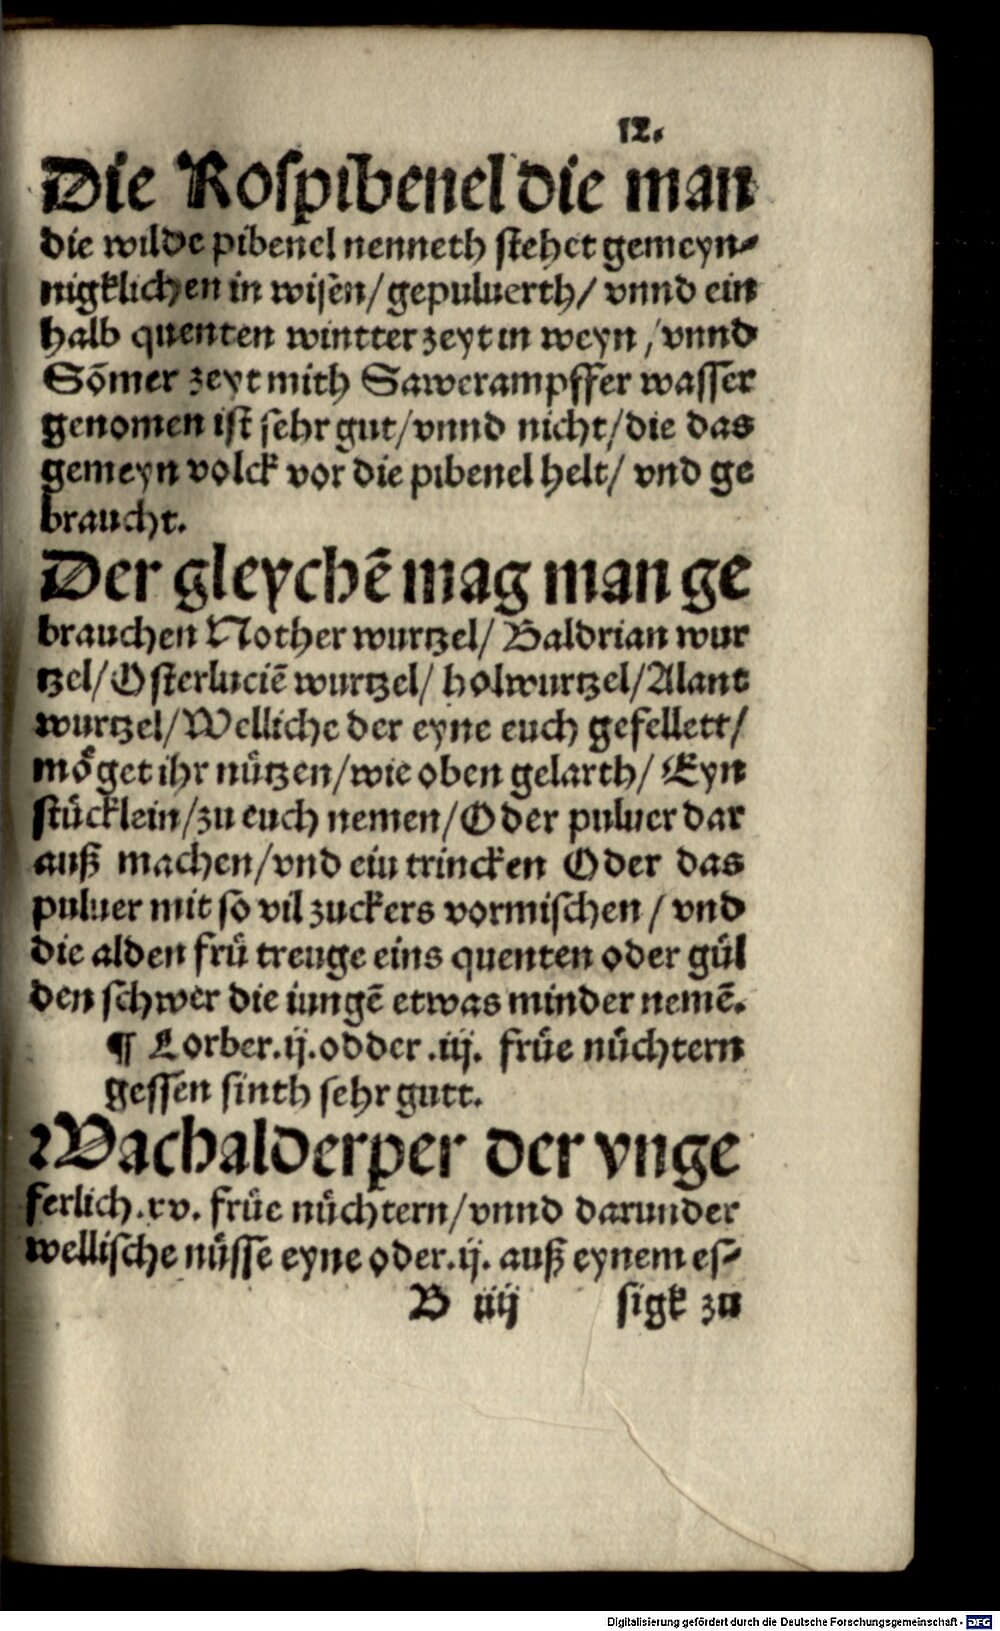 12.
Die Rospibenel die man
die wilde pibenel nenneth stehet gemeyn⸗
nigklichen in wisen/gepuluerth/ vnnd ein
halb quenten wintter zeyt in weyn /vnnd
Sōmer zeyt mith Sawerampffer wasser
genomen ist sehr gut/vnnd nicht/die das
gemeyn volck vor die pibenel helt/ vnd ge
braucht.
Der gleychē mag man ge
brauchen Nother wurtzel/ Baldrian wur
tzel/Osterluciē wurtzel/ holwurtzel/Alant
wurtzel/Welliche der eyne euch gefellett/
moͤget ihr nuͤtzen/wie oben gelarth/ Eyn
stuͤcklein/zu euch nemen/Oder puluer dar
auß machen/vnd ein trincken Oder das
puluer mit so vil zuckers vormischen / vnd
die alden fruͤ treuge eins quenten oder guͤl
den schwer die iungē etwas minder nemē.
¶ Lorber.ij.odder .iij. fruͤe nuͤchtern
gessen sinth sehr gutt.
Wachalderper der vnge
ferlich.xv. fruͤe nuͤchtern/vnnd darunder
wellische nuͤsse eyne oder.ij. auß eynem es⸗
B iiij sigk zu
Digitalisierung gefördert durch die Deutsche Forschungsgemeinschaft - DFG